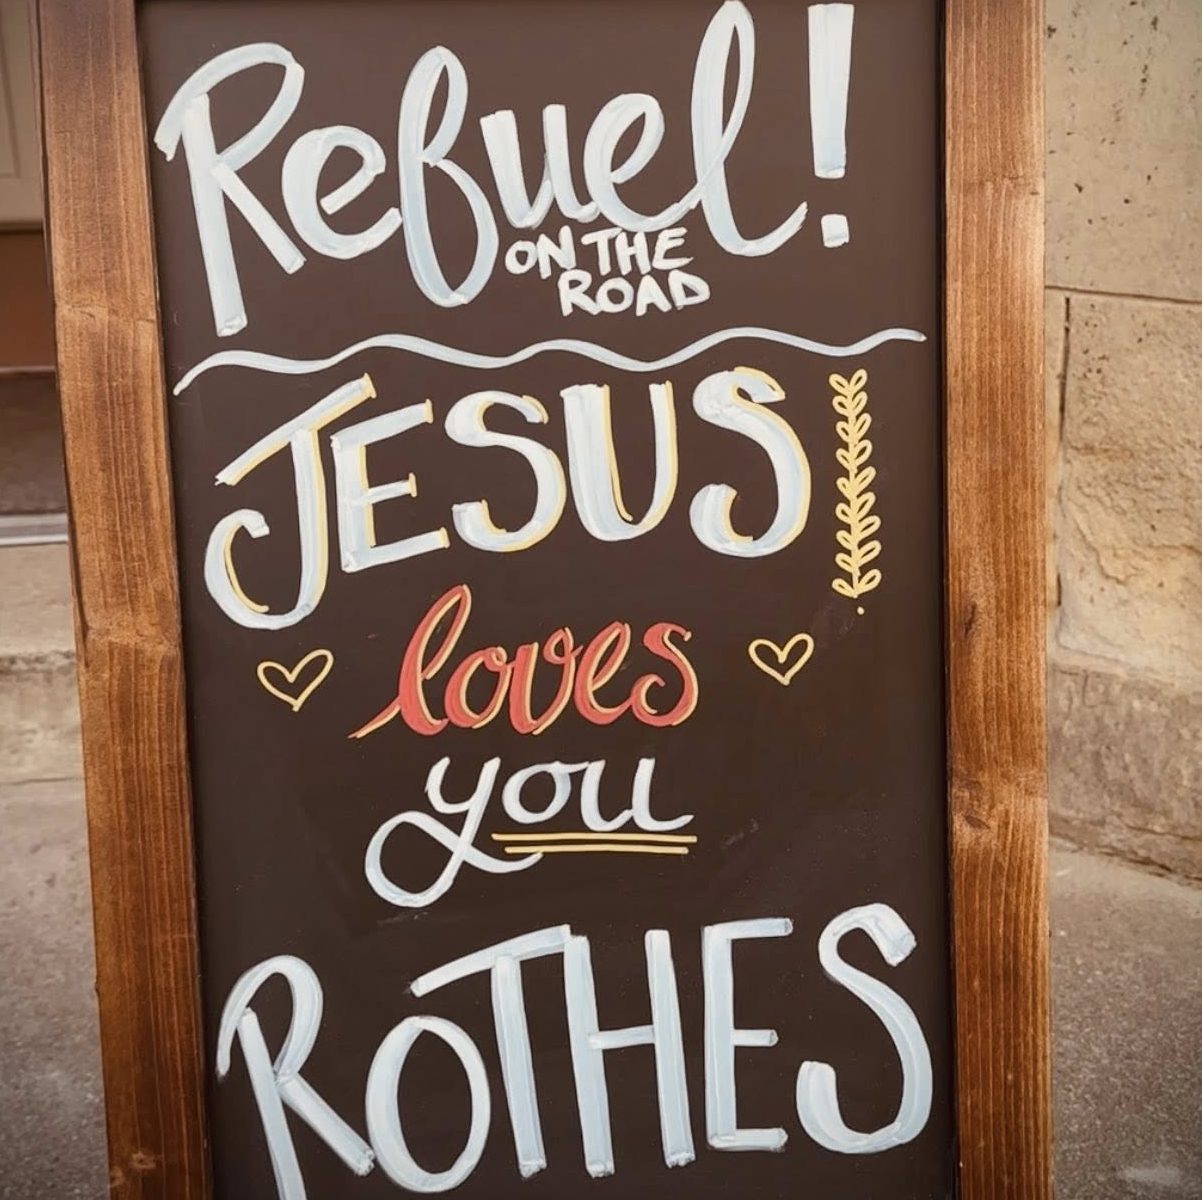 Refuel!
ON THE
ROAD
JESUS
loves
you
ROTHES